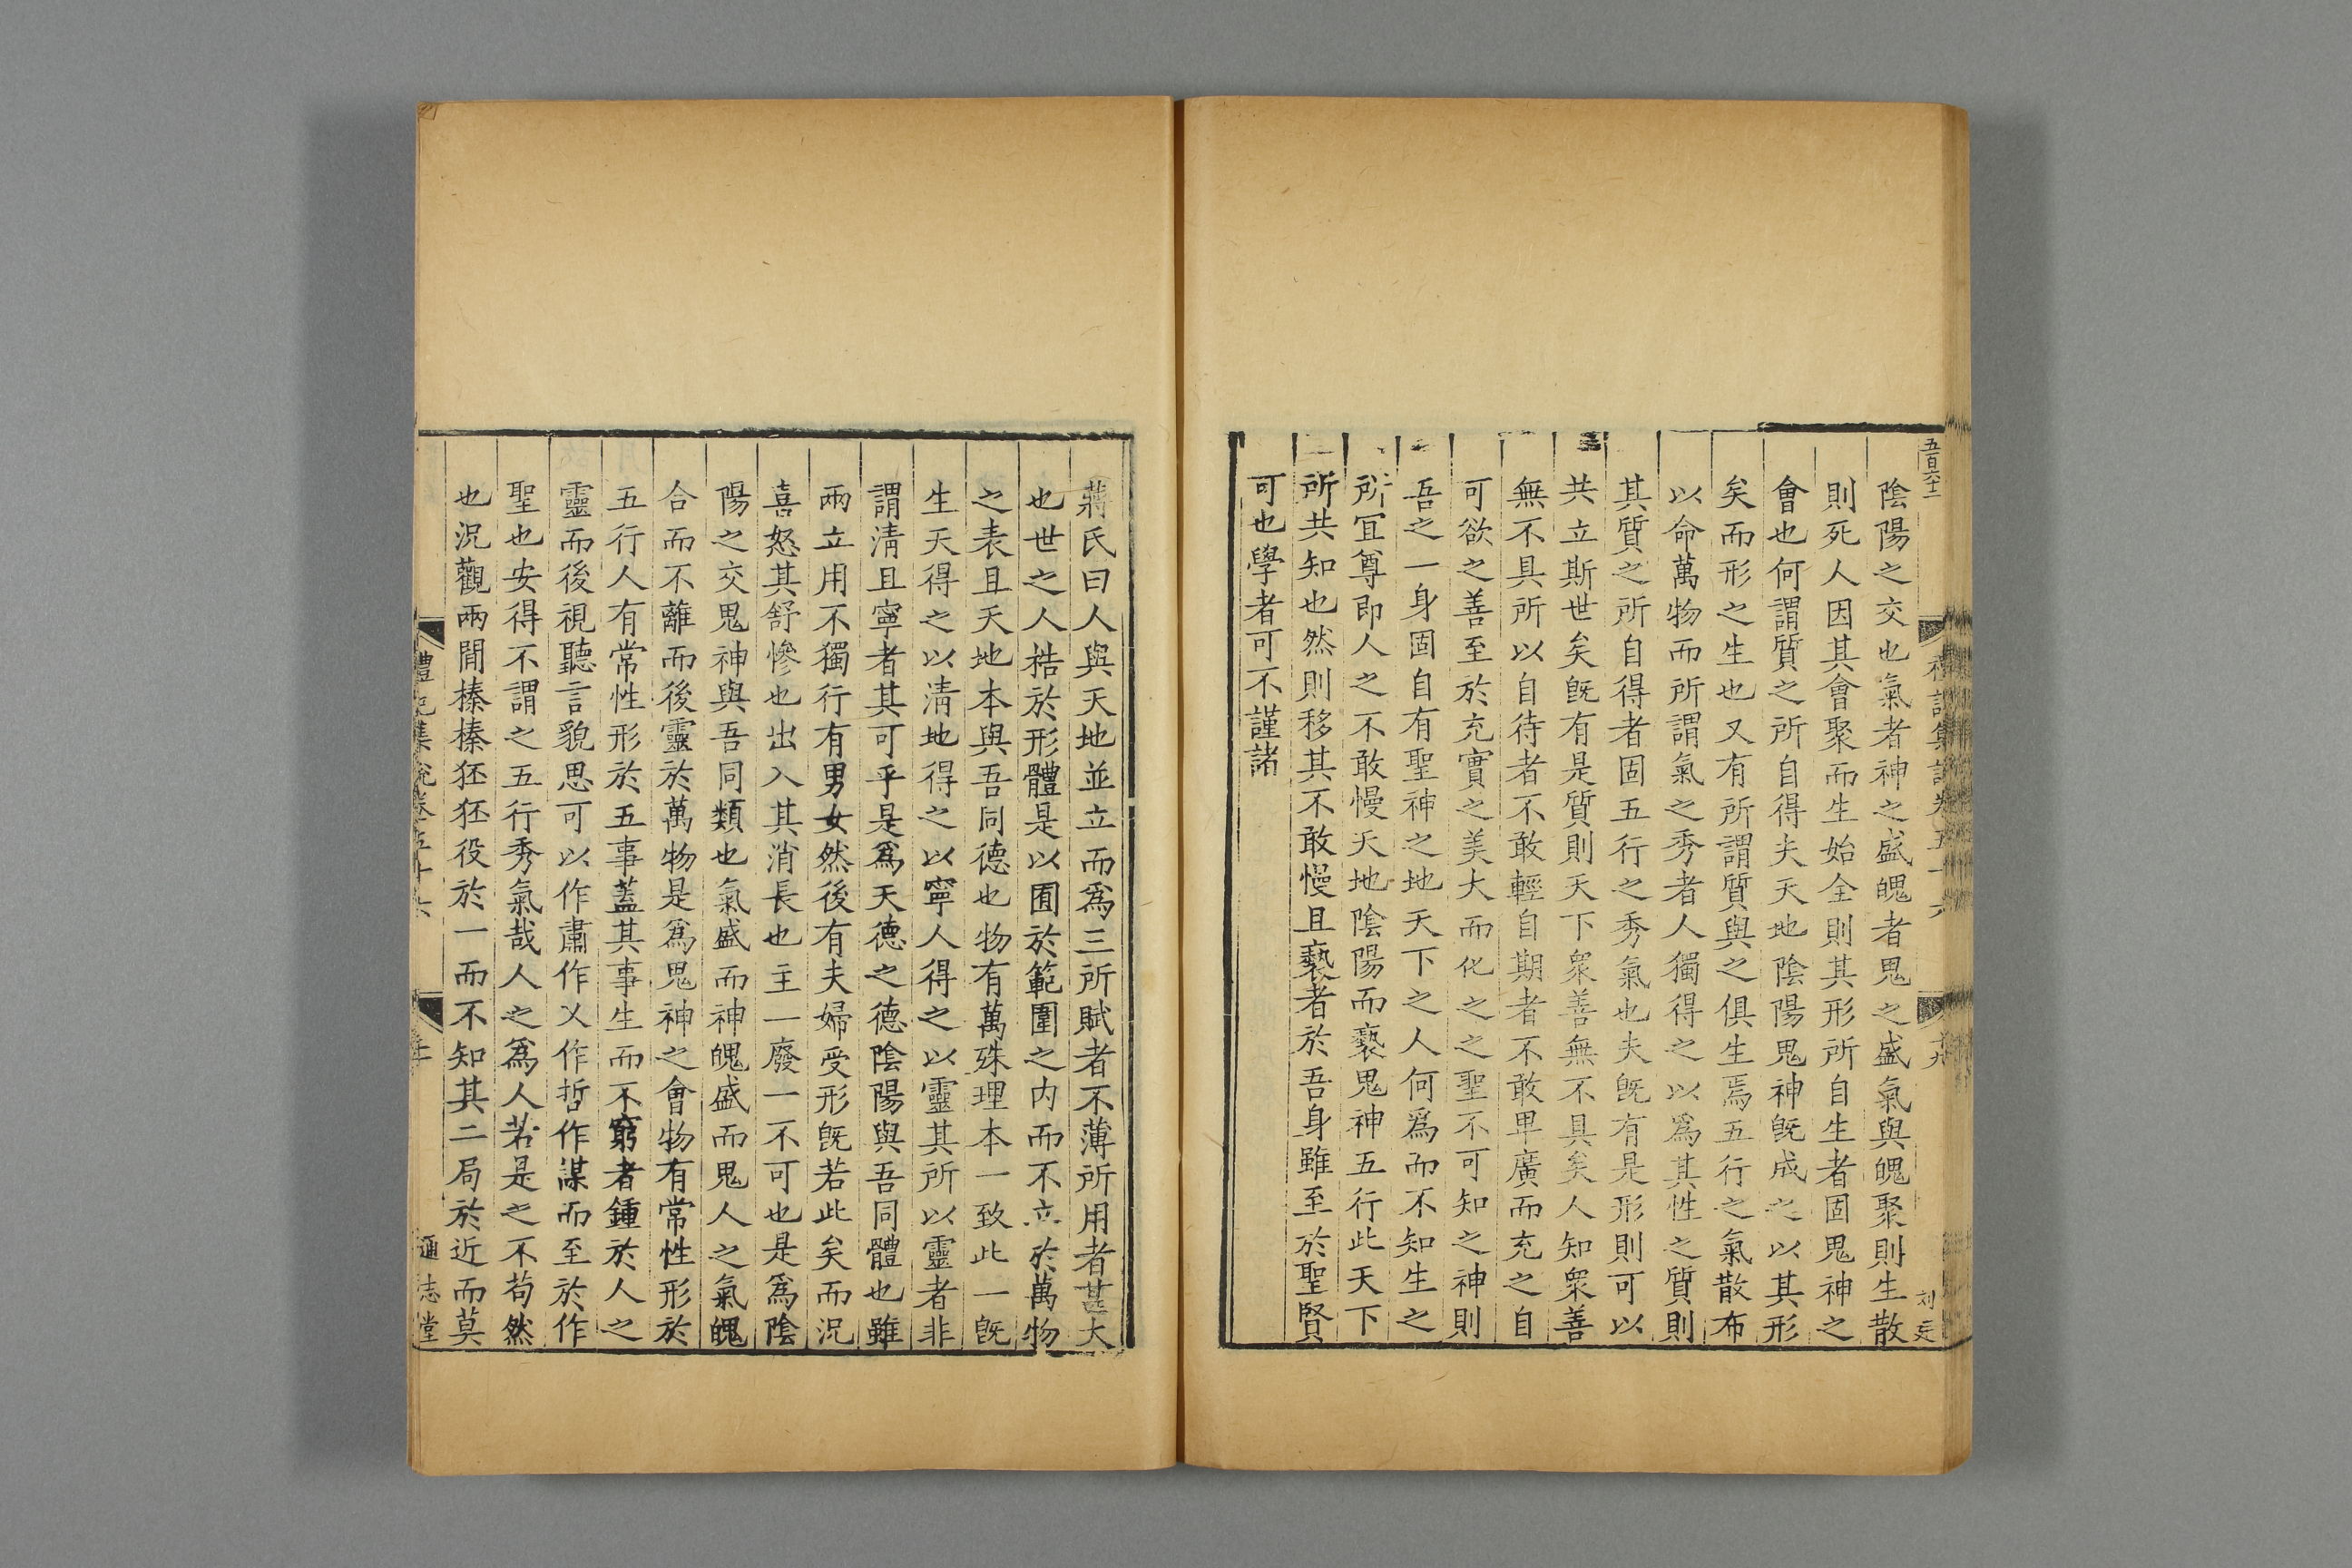 五百六十二
陰陽之交也氣者神之盛魄者鬼之盛氣與魄聚則生散
則死人因其會聚而生始全則其形所自生者固鬼神之
會也何謂質之所自得夫天地陰陽鬼神旣成之以其形
矣而形之生也又有所謂質與之俱生焉五行之氣散布
以命萬物而所謂氣之秀者人獨得之以爲其性之質則
其質之所自得者固五行之秀氣也夫旣有是形則可以
共立斯世矣旣有是質則天下衆善無不具矣人知衆善
無不具所以自待者不敢輕自期者不敢卑廣而充之自
可欲之善至於充實之美大而化之之聖不可知之神則
吾之一身固自有聖神之地天下之人何爲而不知生之
所宜尊即人之不敢慢天地陰陽而褻鬼神五行此天下
所共知也然則移其不敢慢且褻者於吾身雖至於聖賢
可也學者可不謹諸
蔣氏曰人與天地並立而爲三所賦者不薄所用者甚大
也世之人梏於形體是以囿於範圍之内而不立於萬物
之表且天地本與吾同德也物有萬殊理本一致此一旣
生天得之以淸地得之以寧人得之以靈其所以靈者非
謂淸且寧者其可乎是爲天德之德陰陽與吾同體也雖
兩立用不獨行有男女然後有夫婦受形旣若此矣而況
喜怒其舒慘也出入其消長也主一廢一不可也是爲陰
陽之交鬼神與吾同類也氣盛而神魄盛而鬼人之氣魄
合而不離而後靈於萬物是爲鬼神之會物有常性形於
五行人有常性形於五事蓋其事生而不窮者鍾於人之
靈而後視聽言貌思可以作肅作乂作哲作謀而至於作
聖也安得不謂之五行秀氣哉人之爲人若是之不苟然
也況觀兩間榛榛狉狉役於一而不知其二局於近而莫
禮記集說卷五十六
通志堂